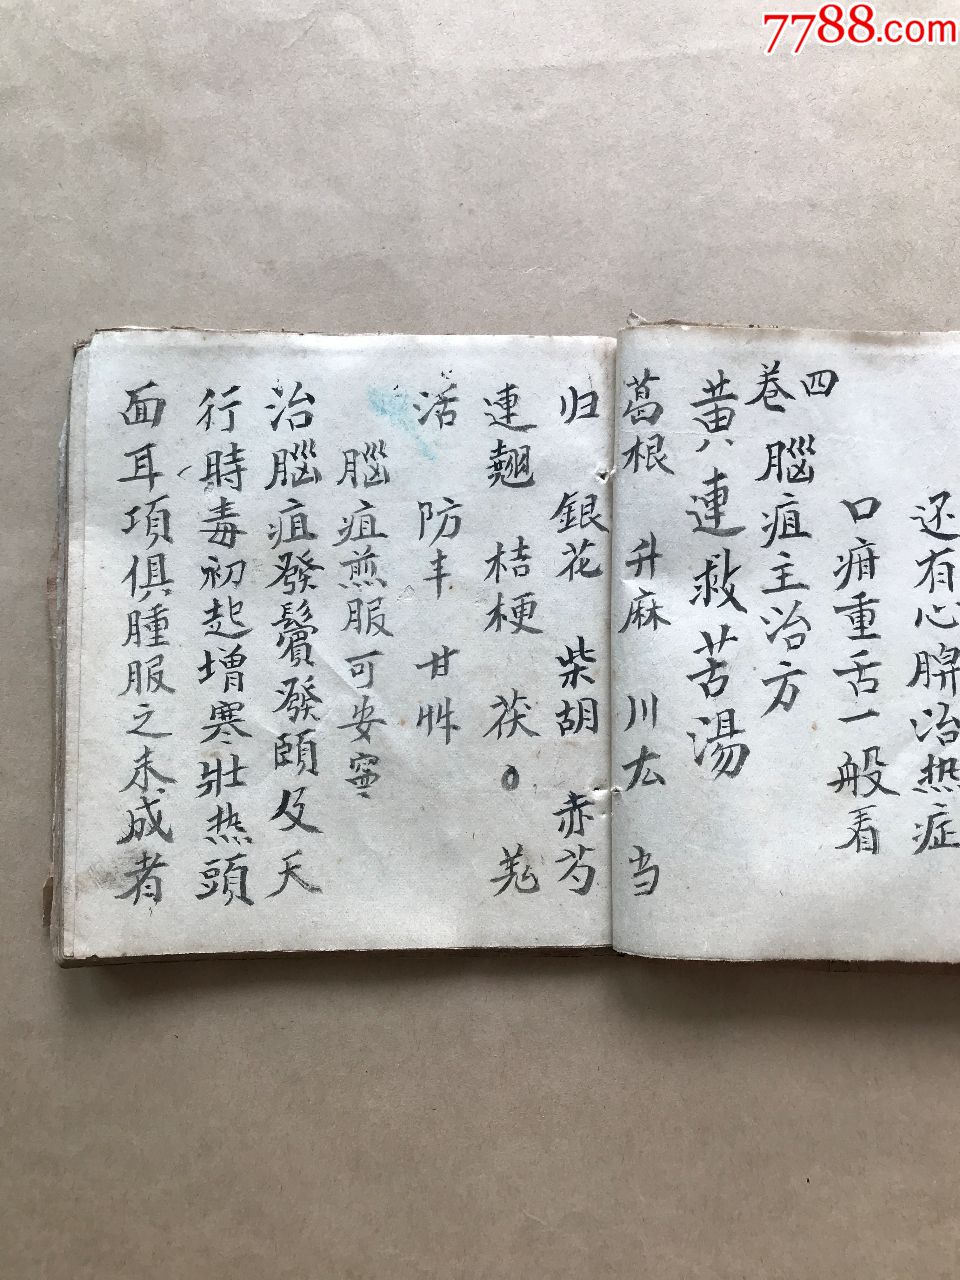 7788.com
还有心脾治热症
口疳重舌一般看
四
卷 腦疽主治方
黄連救苦湯
葛根 升麻 川厷 当
归 銀花 柴胡 赤芍
連翹 桔梗 茯〇 羌
活 防丰 甘艸
腦疽煎服可安寧
治腦疽發鬢發頤及天
行時毒初起增寒壯热頭
面耳項俱腫服之未成者